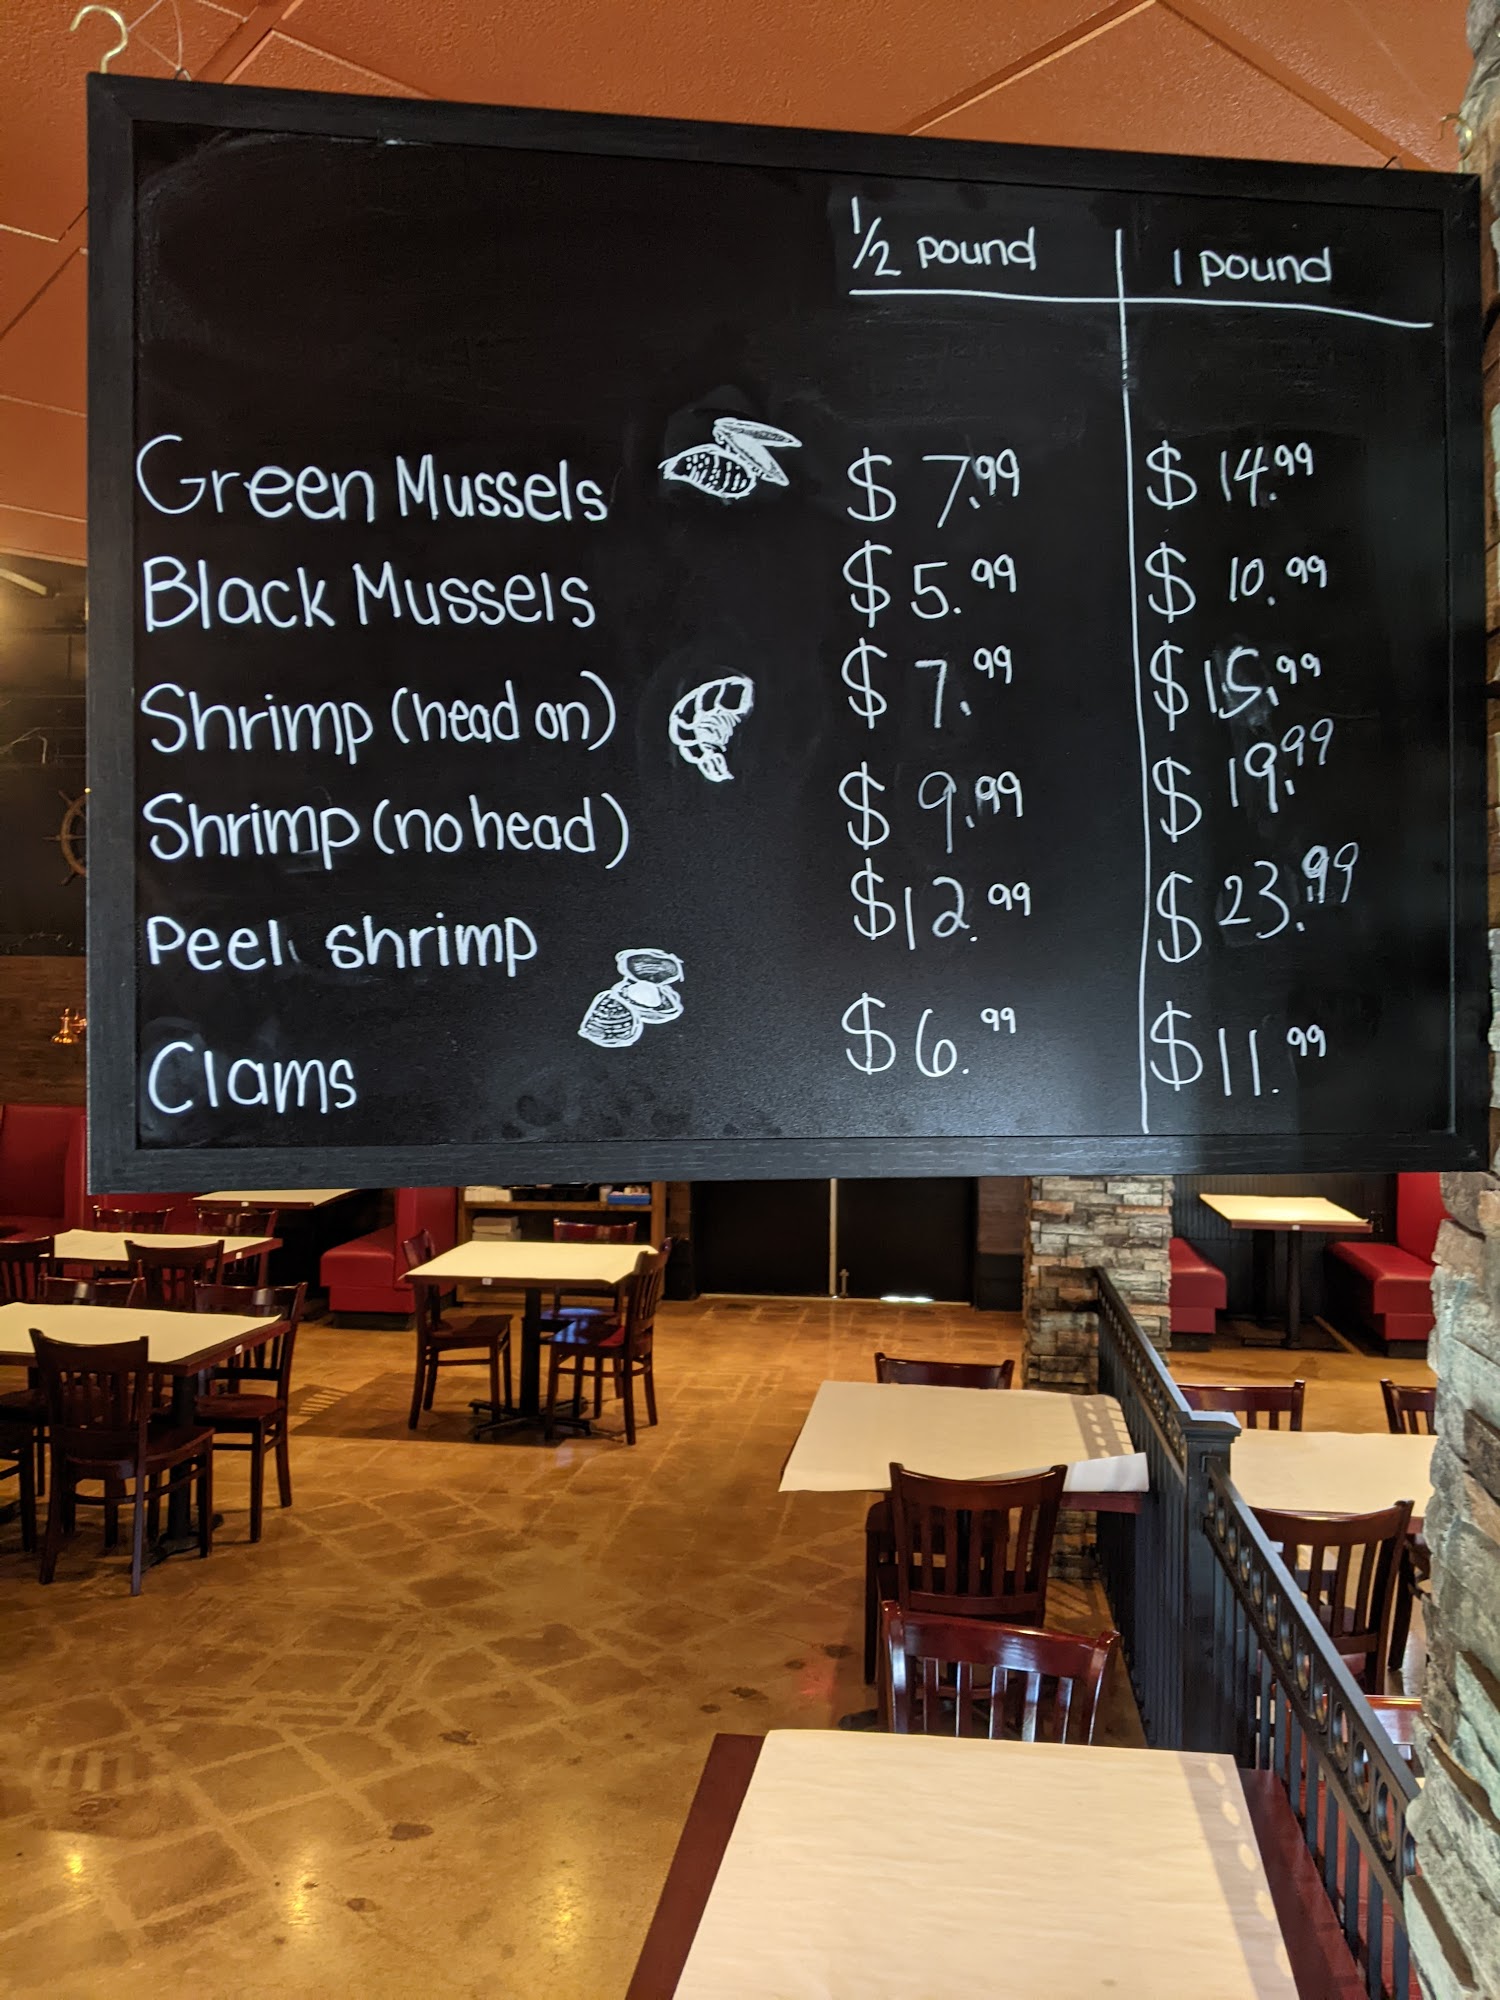 1/2 pound 1 pound
Green Mussels $7.99 $14.99
Black Mussels $5.99 $10.99
Shrimp (head on) $7.99 $15.99
Shrimp (no head) $9.99 $19.99
Peel shrimp $12.99 $23.99
Clams $6.99 $11.99